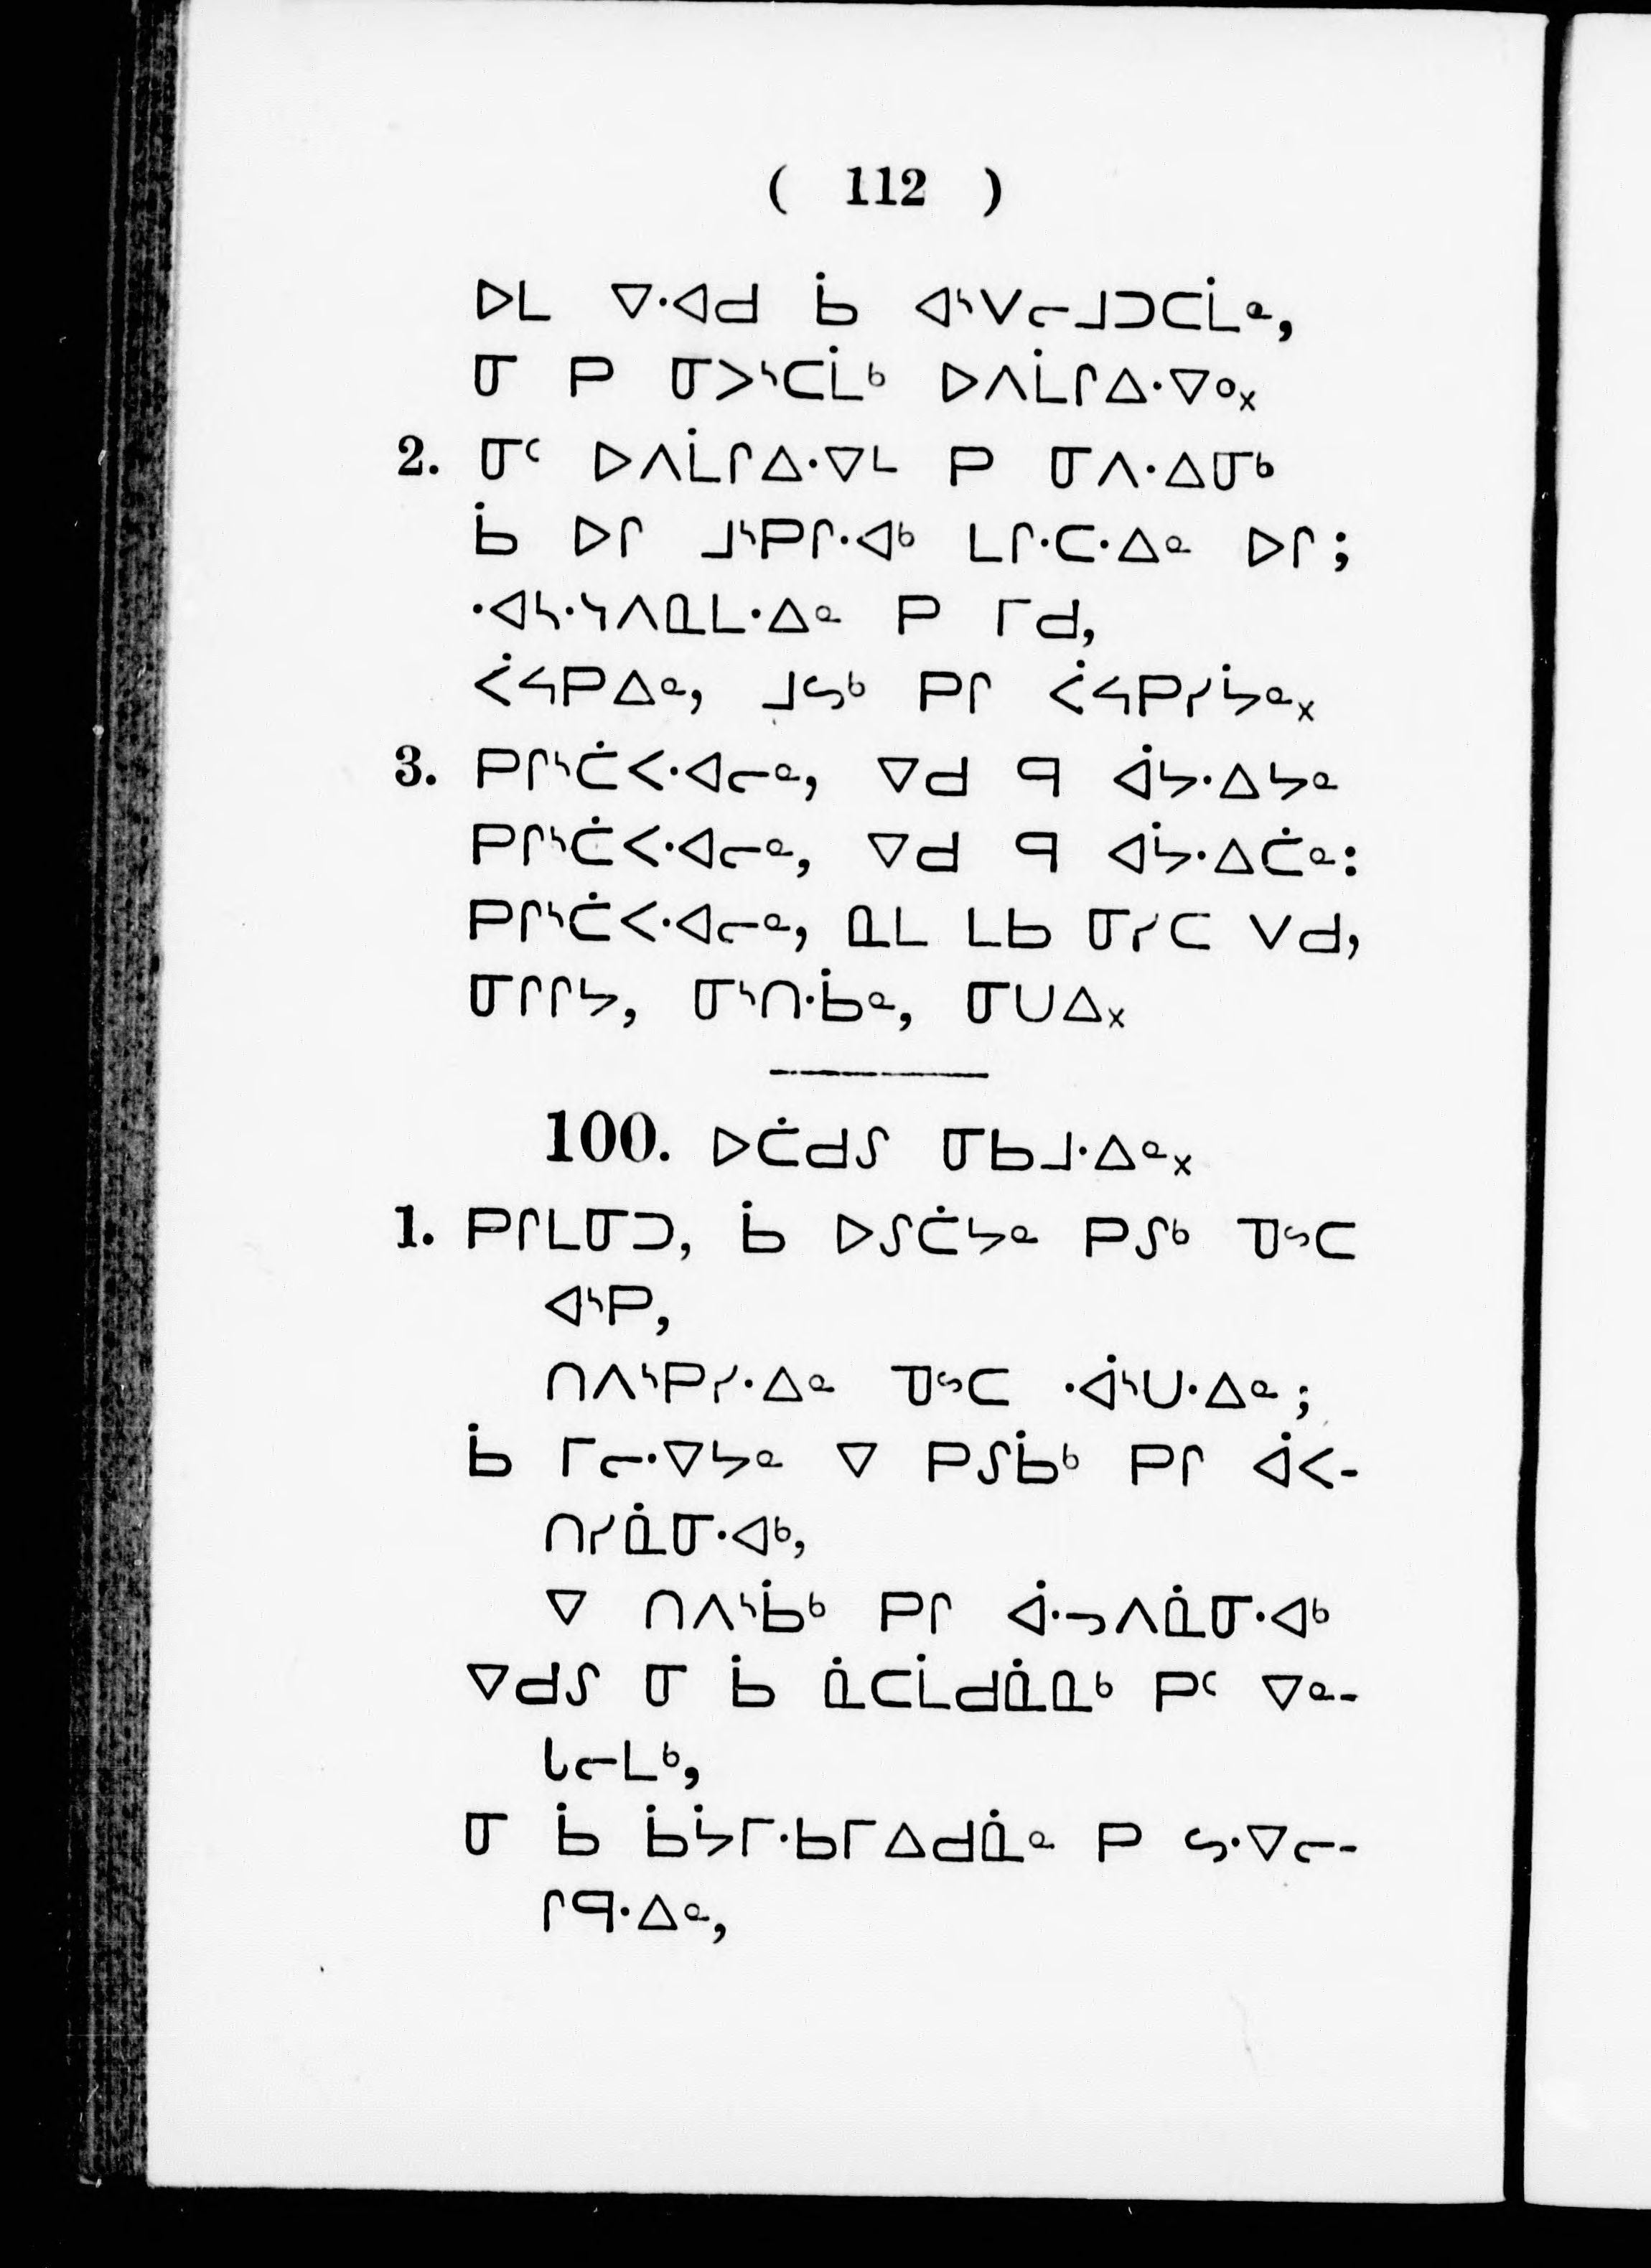 ( 112 )
ᐅᒪ ᐁᐧᐊᑯ ᑳ ᐊᔅᐯᓕᒧᑐᑕᒫᓐ,
ᓂ ᑭ ᓂᐳᔅᑕᒫᒃ ᐅᐱᒫᒋᐃᐧᐁᐤ᙮
2. ᓂᑦ ᐅᐱᒫᒋᐃᐧᐁᒻ ᑭ ᓂᐱᐧᐃᓂᒃ
ᑳ ᐅᒋ ᒧᔅᑭᒋᐧᐊᒃ ᒪᒋᐧᑕᐧᐃᓐ ᐅᒋ ;
ᐧᐊᓴᐧᔦᐱᓇᒪᐧᐃᓐ ᑭ ᒥᑯ,
ᐹᔭᑭᐃᓐ, ᒧᔕᒃ ᑭᒋ ᐹᔭᑭᓯᔮᓐ᙮
3. ᑭᒋᔅᑖᐸᐧᐊᓕᓐ, ᐁᑯ ᑫ ᐋᔭᐧᐃᔭᓐ
ᑭᒋᔅᑖᐸᐧᐊᓕᓐ, ᐁᑯ ᑫ ᐊᔮᐧᐃᑖᓐ:
ᑭᒋᔅᑖᐸᐧᐊᓕᓐ, ᓇᒪ ᒪᑲ ᓂᓯᑕ ᐯᑯ,
ᓂᒋᒋᔭ, ᓂᔅᑎᐧᑳᓐ, ᓂᑌᐃ᙮
100. ᐅᑖᑯᔑ ᓂᑲᒧᐧᐃᓐ᙮
1. ᑭᒋᒪᓂᑐ, ᑳ ᐅᔑᑖᔭᓐ ᑭᔑᒃ ᓀᔥᑕ
ᐊᔅᑭ,
ᑎᐱᔅᑭᓯᐧᐃᓐ ᓀᔥᑕ ᐧᐋᔅᑌᐧᐃᓐ ;
ᑳ ᒥᓕᐧᐁᔭᓐ ᐁ ᑭᔑᑳᒃ ᑭᒋ ᐋᐸ-
ᑎᓯᓈᓂᐧᐊᒃ,
ᐁ ᑎᐱᔅᑳᒃ ᑭᒋ ᐋᐧᓗᐱᓈᓂᐧᐊᒃ
ᐁᑯᔑ ᓂ ᑳ ᓈᑕᒫᑯᓈᓇᒃ ᑭᑦ ᐁᓐ-
ᒐᓕᒪᒃ,
ᓂ ᑳ ᑳᔮᒥᐧᑲᒥᐃᑯᓈᓐ ᑭ ᔕᐧᐁᓕ-
ᒋᑫᐧᐃᓐ,